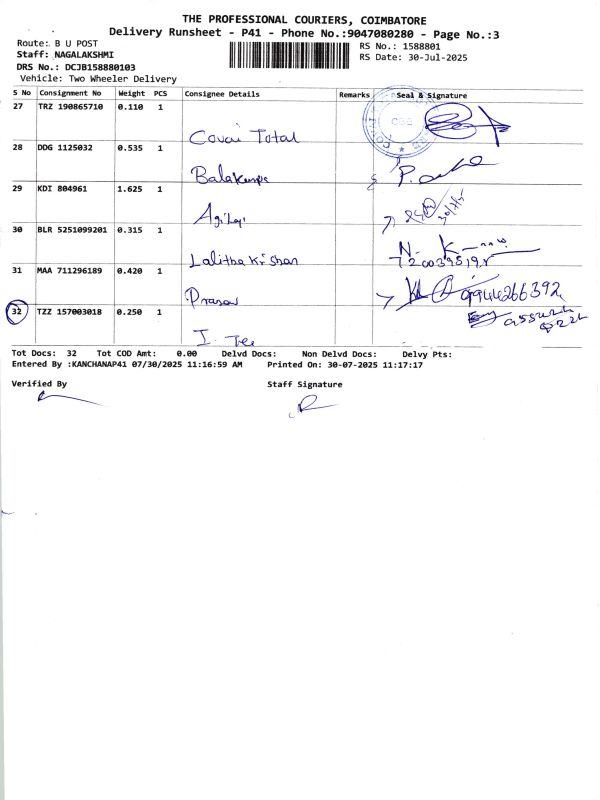 THE PROFESSIONAL COURIERS, COIMBATORE
Delivery Runsheet - P41 - Phone No.:9047080280 - Page No.:3
Route: B U POST
Staff: NAGALAKSHMI
DRS No.: DCJB158880103
Vehicle: Two Wheeler Delivery
RS No.: 1588801
RS Date: 30-Jul-2025
S No Consignment No Weight PCS Consignee Details Remarks Seal & Signature
27 TRZ 190865710 0.110 1
Covai Total
28 DDG 1125032 0.535 1
29 KDI 804961 1.625 1
30 BLR 5251099201 0.315 1
Lalitha Krishan
31 MAA 711296189 0.420 1
9944266392
32 TZZ 157003018 0.250 1
I. Tec
Tot Docs: 32 Tot COD Amt: 0.00 Delvd Docs: Non Delvd Docs: Delvy Pts:
Entered By :KANCHANAP41 07/30/2025 11:16:59 AM Printed On: 30-07-2025 11:17:17
Verified By Staff Signature